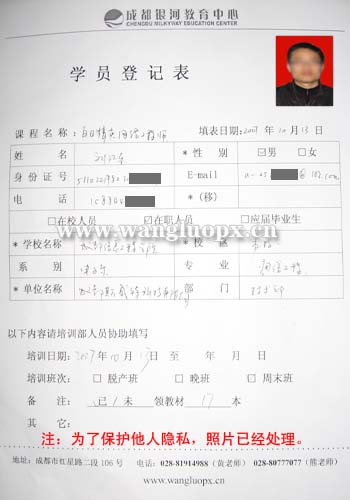 成都银河教育中心
CHENGDU MILKYWAY EDUCATION CENTER
学员登记表
课程名称： 填表日期：2007 年 10 月 13 日
姓名 * 性别 ☑男 □女
身份证号 E-mail
电话 * (移)
□在校人员 ☑在职人员 □应届毕业生
* 学校名称 * 校区
系别 专业 通信工程
* 单位名称 部门
www.wangluopx.cn
以下内容请培训部人员协助填写
培训日期：2007 年 10 月 13 日 至 年 月 日
培训班次： □ 脱产班 □ 晚班 □ 周末班
备注： 已 / 未 领教材 17 本
其它：
注：为了保护他人隐私，照片已经处理。
地址：成都市红星路二段 106 号 电话：028-81914988（黄老师） 028-80777077（熊老师）
www.wangluopx.cn